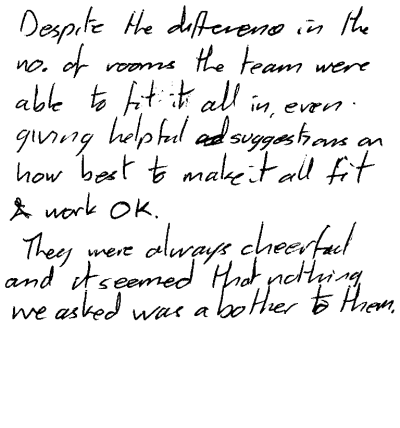 Despite the difference in the
no. of rooms the team were
able to fit it all in, even
giving helpful suggestions on
how best to make it all fit
& work OK.
They were always cheerful
and it seemed that nothing
we asked was a bother to them.